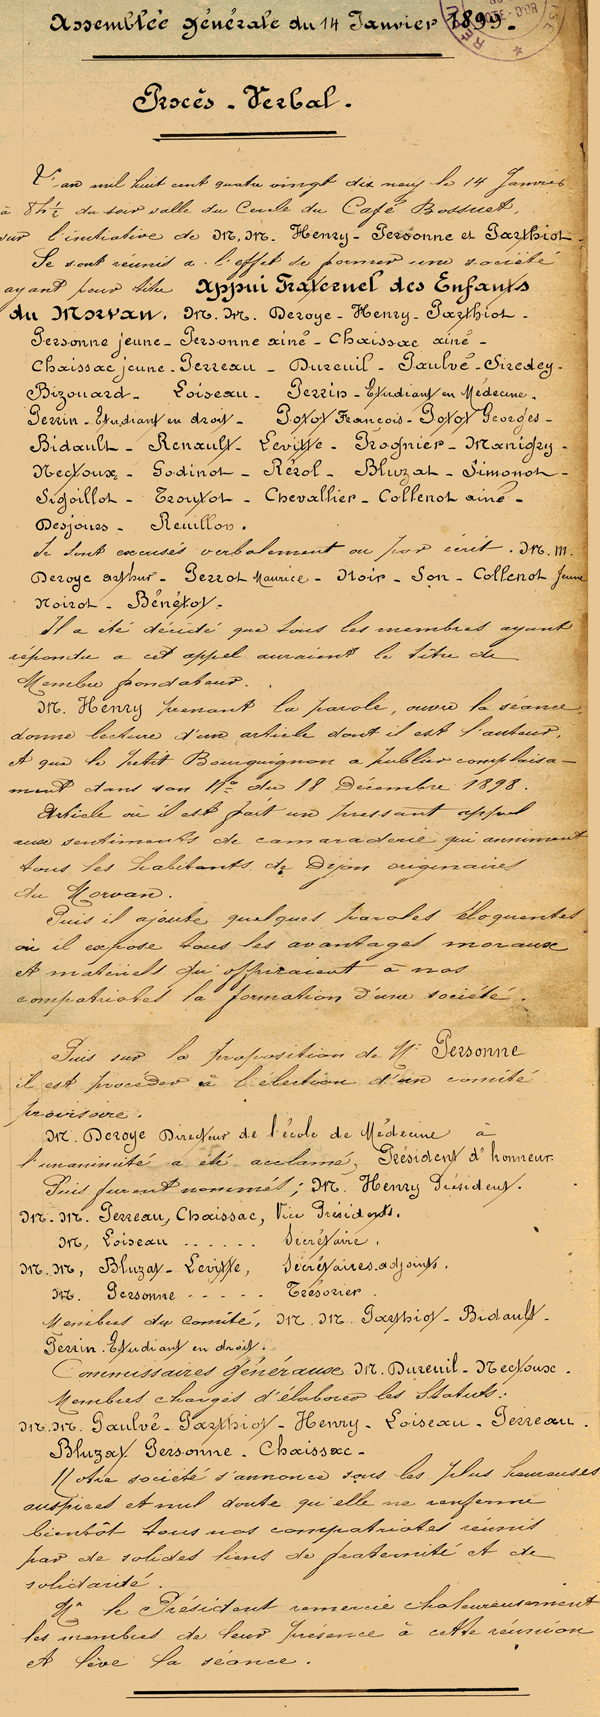 Assemblée générale du 14 Janvier 1899.
Procès-Verbal.
L'an mil huit cent quatre vingt dix neuf le 14 Janvier
à 8h½ du soir salle du Cercle du Café Bossuet,
sur l'initiative de M.M. Henry-Personne et Parthiot.
Se sont réunis a l'effet de former une société
ayant pour titre Appui Fraternel des Enfants
du Morvan. M.M. Deroye-Henry-Parthiot-
Personne jeune-Personne ainé-Chaissac ainé-
Chaissac jeune-Perreau-Dureuil-Paulvé-Siredey-
Bizouard-Loiseau-Perrin-Etudiant en Médecine-
Perrin-Etudiant en droit-Potot François-Potot Georges-
Bidault-Renault-Leville-Prognier-Manigry-
Nectoux-Godinot-Rérol-Bluzat-Simonot-
Sigoillot-Trouttot-Chevallier-Collenot ainé-
Desjours-Reuillon.
Se sont excusés verbalement ou par écrit. M.M.
Deroye arthur-Perrot Maurice-Noir-Son-Collenot Jeune
Noirot-Bénétot.
Il a été décidé que tous les membres ayant
répondu a cet appel auraient le titre de
Membre fondateur.
M. Henry prenant la parole, ouvre la séance,
donne lecture d'un article dont il est l'auteur,
et que le petit Bourguignon a publier complaisa-
ment dans son No du 18 Décembre 1898.
Article où il est fait un pressant appel
aux sentiments de camaraderie qui anniment
tous les habitants de Dijon originaires
du Morvan.
Puis il ajoute quelques paroles éloquentes
où il expose tous les avantages moraux
et matériels qu'offriraient à nos
compatriotes la formation d'une société.
Puis sur la proposition de Mr Personne
il est procéder à l'élection d'un comité
provisoire.
M. Deroye Directeur de l'école de Médecine à
l'unanimité a été acclamé, Président d'honneur.
Puis furent nommés; M. Henry Président.
M.M. Perreau, Chaissac, Vice Présidents.
M, Loiseau ...... Secrétaire.
M.M, Bluzat-Leville, Secrétaires-adjoints.
M. Personne ..... Trésorier.
Membres du comité, M.M. Parthiot-Bidault-
Perrin Etudiant en droit.
Commissaires généraux M.M. Dureuil-Nectoux.
Membres chargés d'élaborer les Statuts:
M.M. Paulvé-Parthiot-Henry-Loiseau-Perreau.
Bluzat Personne-Chaissac-
Notre société s'annonce sous les plus heureuses
auspices et nul doute qu'elle ne renferme
bientôt tous nos compatriotes réunis
par de solides liens de fraternité et de
solidarité.
Mr le Président remercie chaleureusement
les membres de leur présence à cette réunion
et lève la séance.